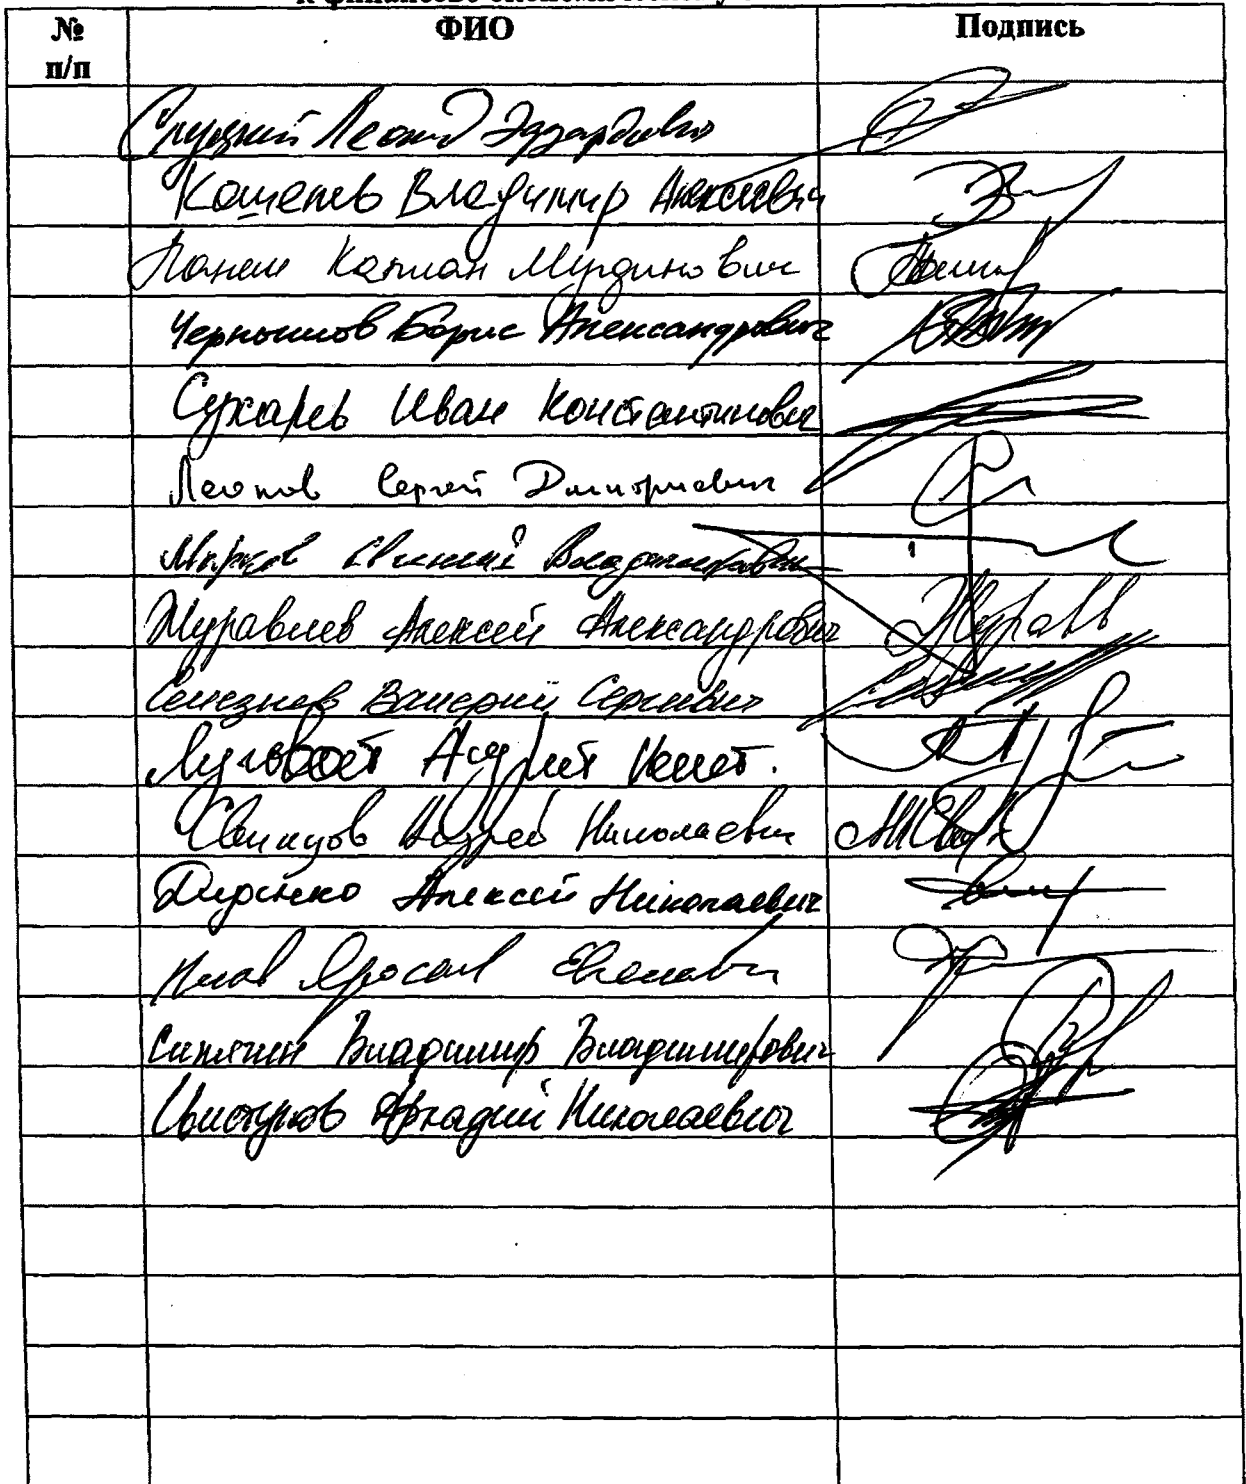 к финансово-экономическому
№ п/п ФИО Подпись
Слуцкий Леонид Эдуардович
Кошелев Владимир Алексеевич
Панеш Каплан Мугдинович
Чернышов Борис Александрович
Сухарев Иван Константинович
Леонов Сергей Дмитриевич
Марков Евгений Владимирович
Журавлев Алексей Александрович Журавлев
Селезнев Валерий Сергеевич
Луговой Андрей Конст.
Свинцов Андрей Николаевич
Диденко Алексей Николаевич
Нилов Ярослав Евгеньевич
Сипягин Владимир Владимирович
Свистунов Аркадий Николаевич